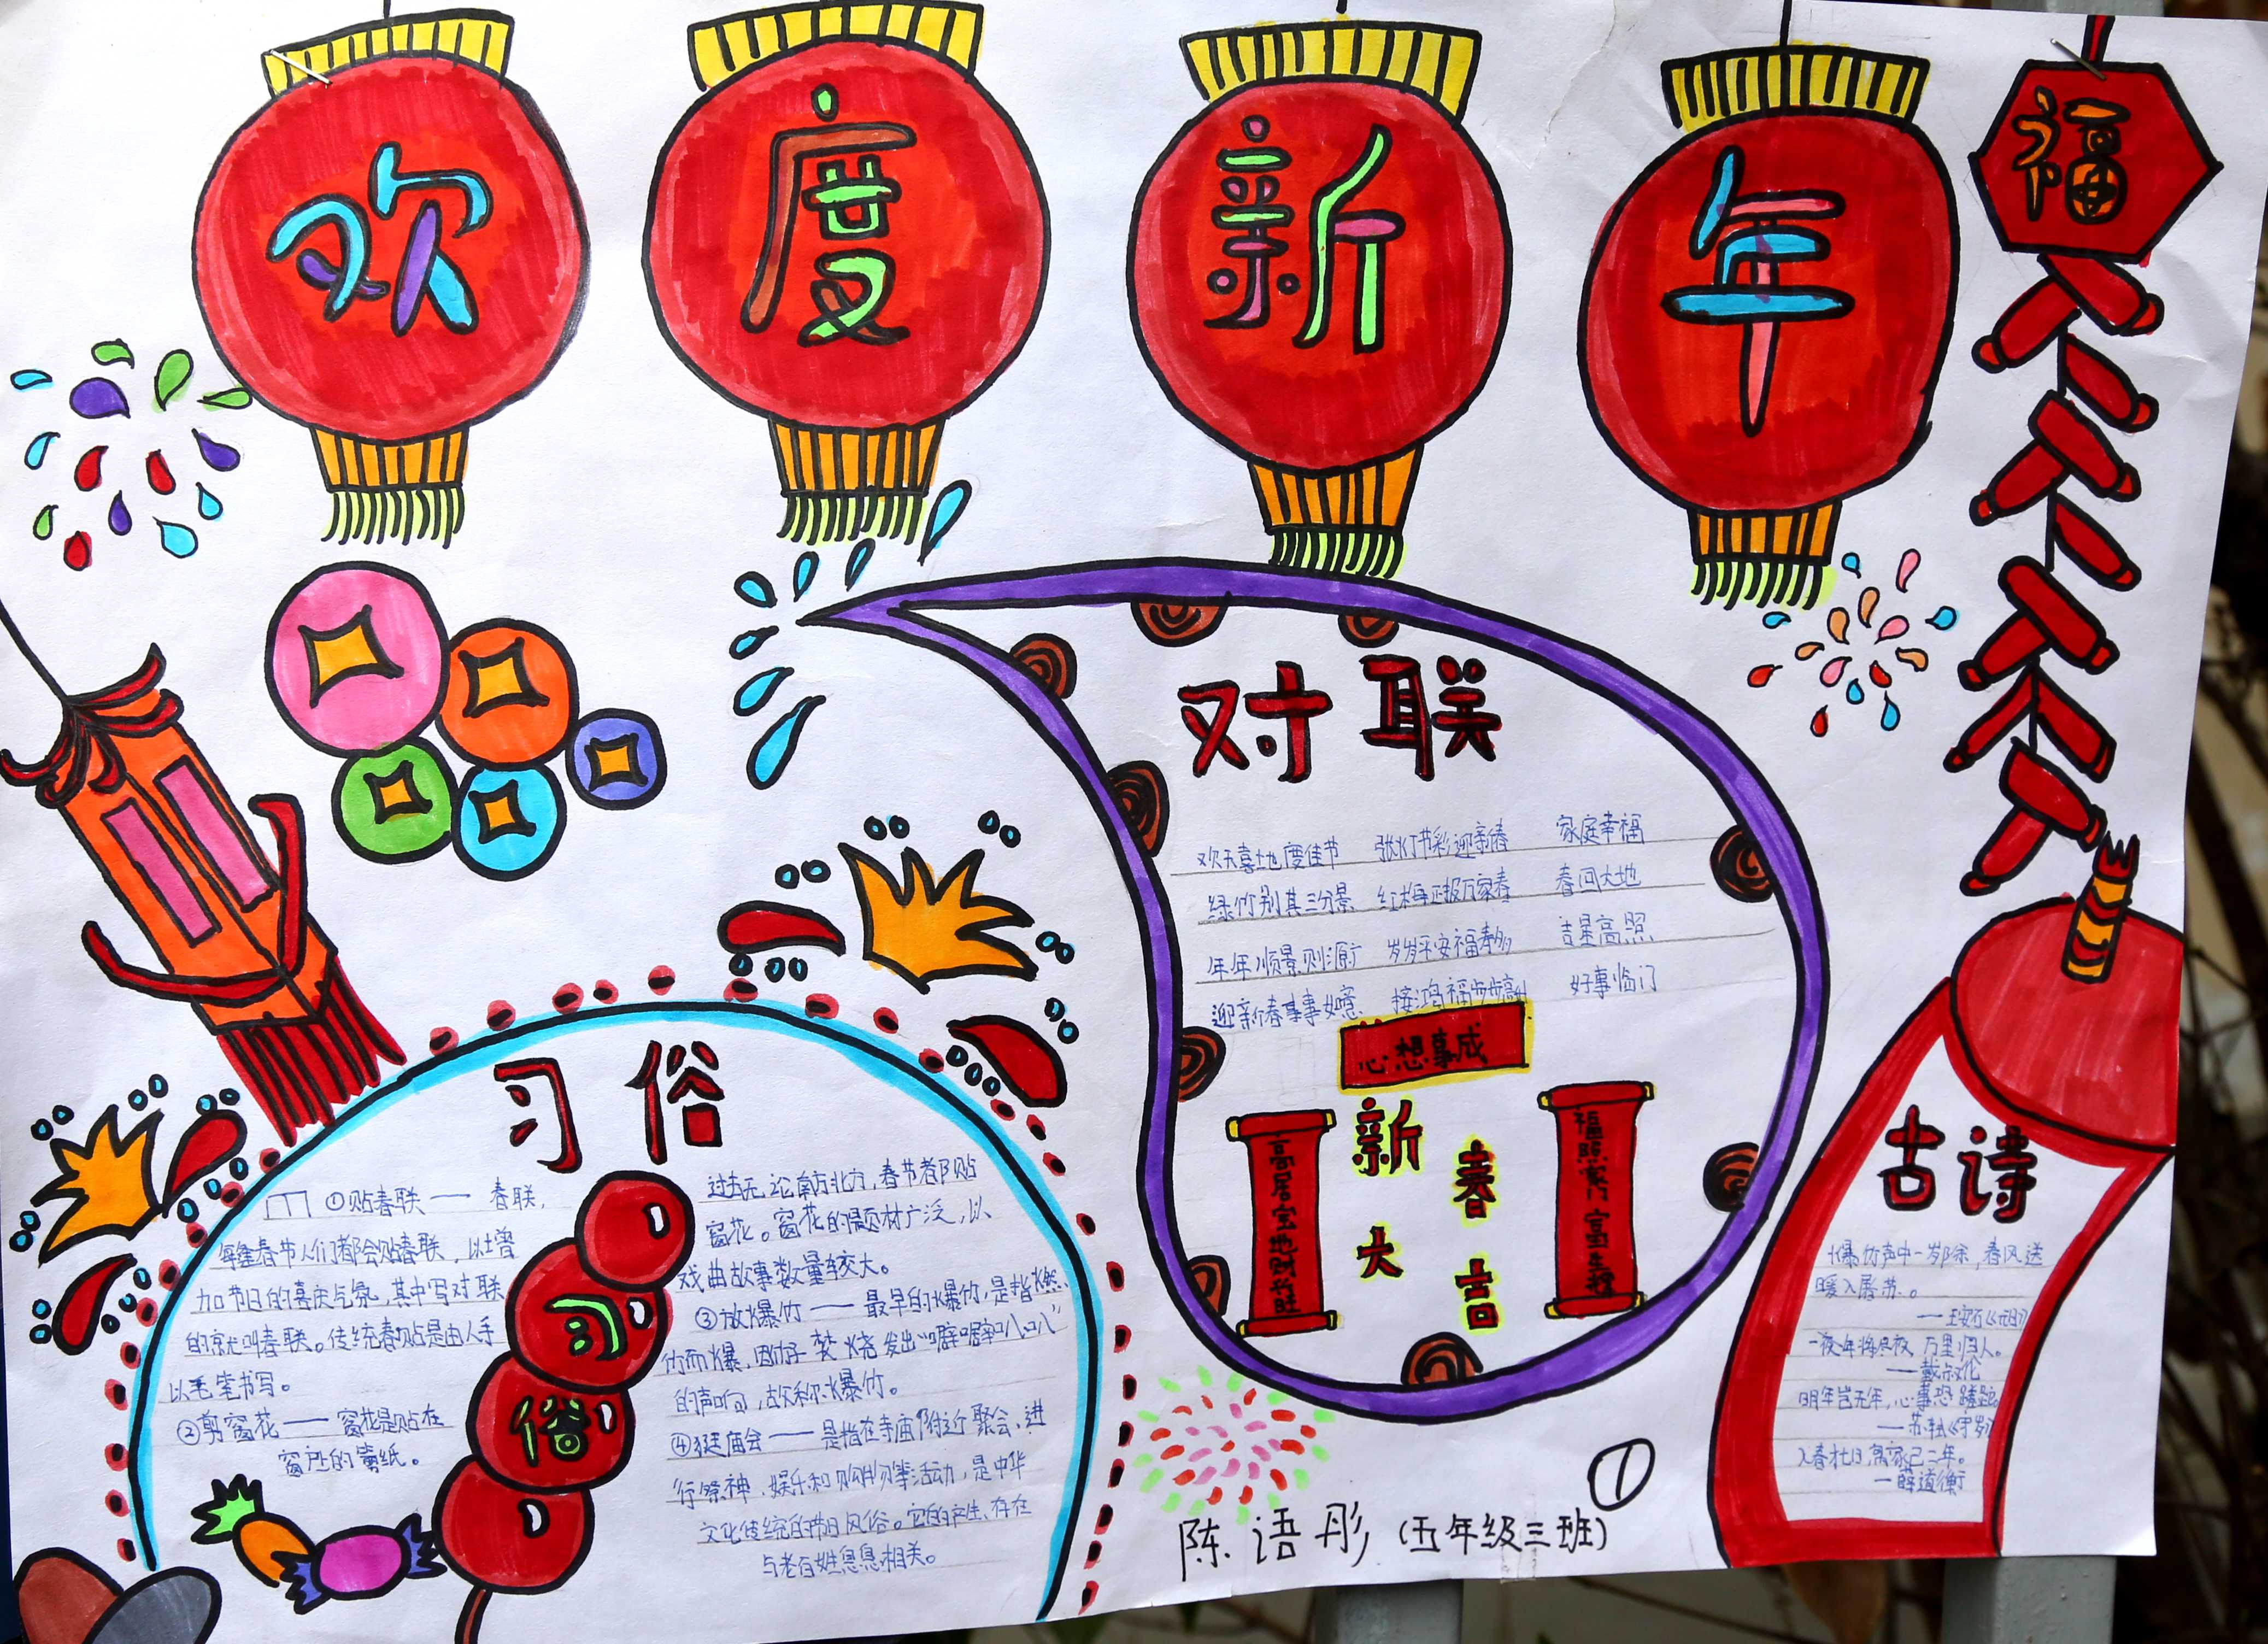 欢度新年
福
对联
欢天喜地度佳节 张灯节彩迎新春 家庭幸福
绿竹别其三分景 红梅正报万家春 春回大地
年年顺景则源广 岁岁平安福寿多 吉星高照
迎新春事事如意 接鸿福步步高升 好事临门
心想事成
高居宝地财兴旺
新春大吉
福照家门富生辉
习俗
①贴春联——春联,
每逢春节人们都会贴春联,以增
加节日的喜庆气氛,其中写对联
的就叫春联。传统春贴是由人手
以毛笔书写。
②剪窗花——窗花是贴在
窗户上的剪纸。
习俗
过去无论南方北方,春节都贴
窗花。窗花的题材广泛,以
戏曲故事数量较大。
③放爆竹——最早的爆竹,是指燃
竹而爆,因竹子焚烧发出“噼噼叭叭”
的声响,故称爆竹。
④逛庙会——是指在寺庙附近聚会、进
行祭神、娱乐和购物等活动,是中华
文化传统的节日风俗。它的产生、存在
与老百姓息息相关。
古诗
爆竹声中一岁除,春风送
暖入屠苏。
——王安石《元日》
一夜年将尽夜,万里归人。
——戴叔伦
明年岂无年,心事恐蹉跎。
——苏轼《守岁》
入春才七日,离家已二年。
——薛道衡
①
陈语彤(五年级三班)